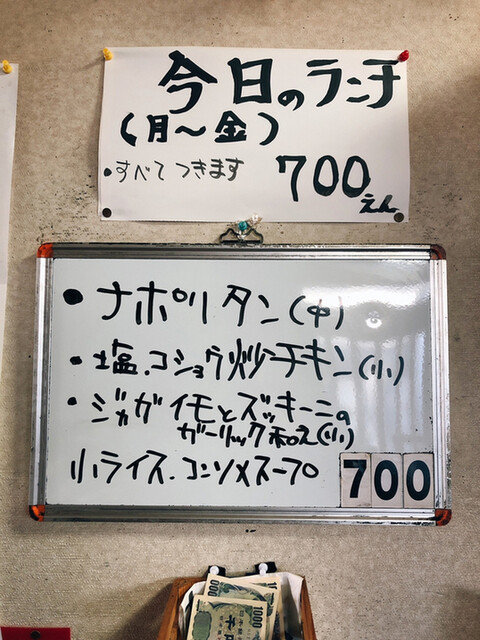 今日のランチ
(月～金)
・すべてつきます 700えん
・ナポリタン(中)
・塩.コショウ炒チキン(小)
・ジャガイモとズッキーニの
ガーリック和え(小)
小ライス.コンソメスープ 700
1000
千円